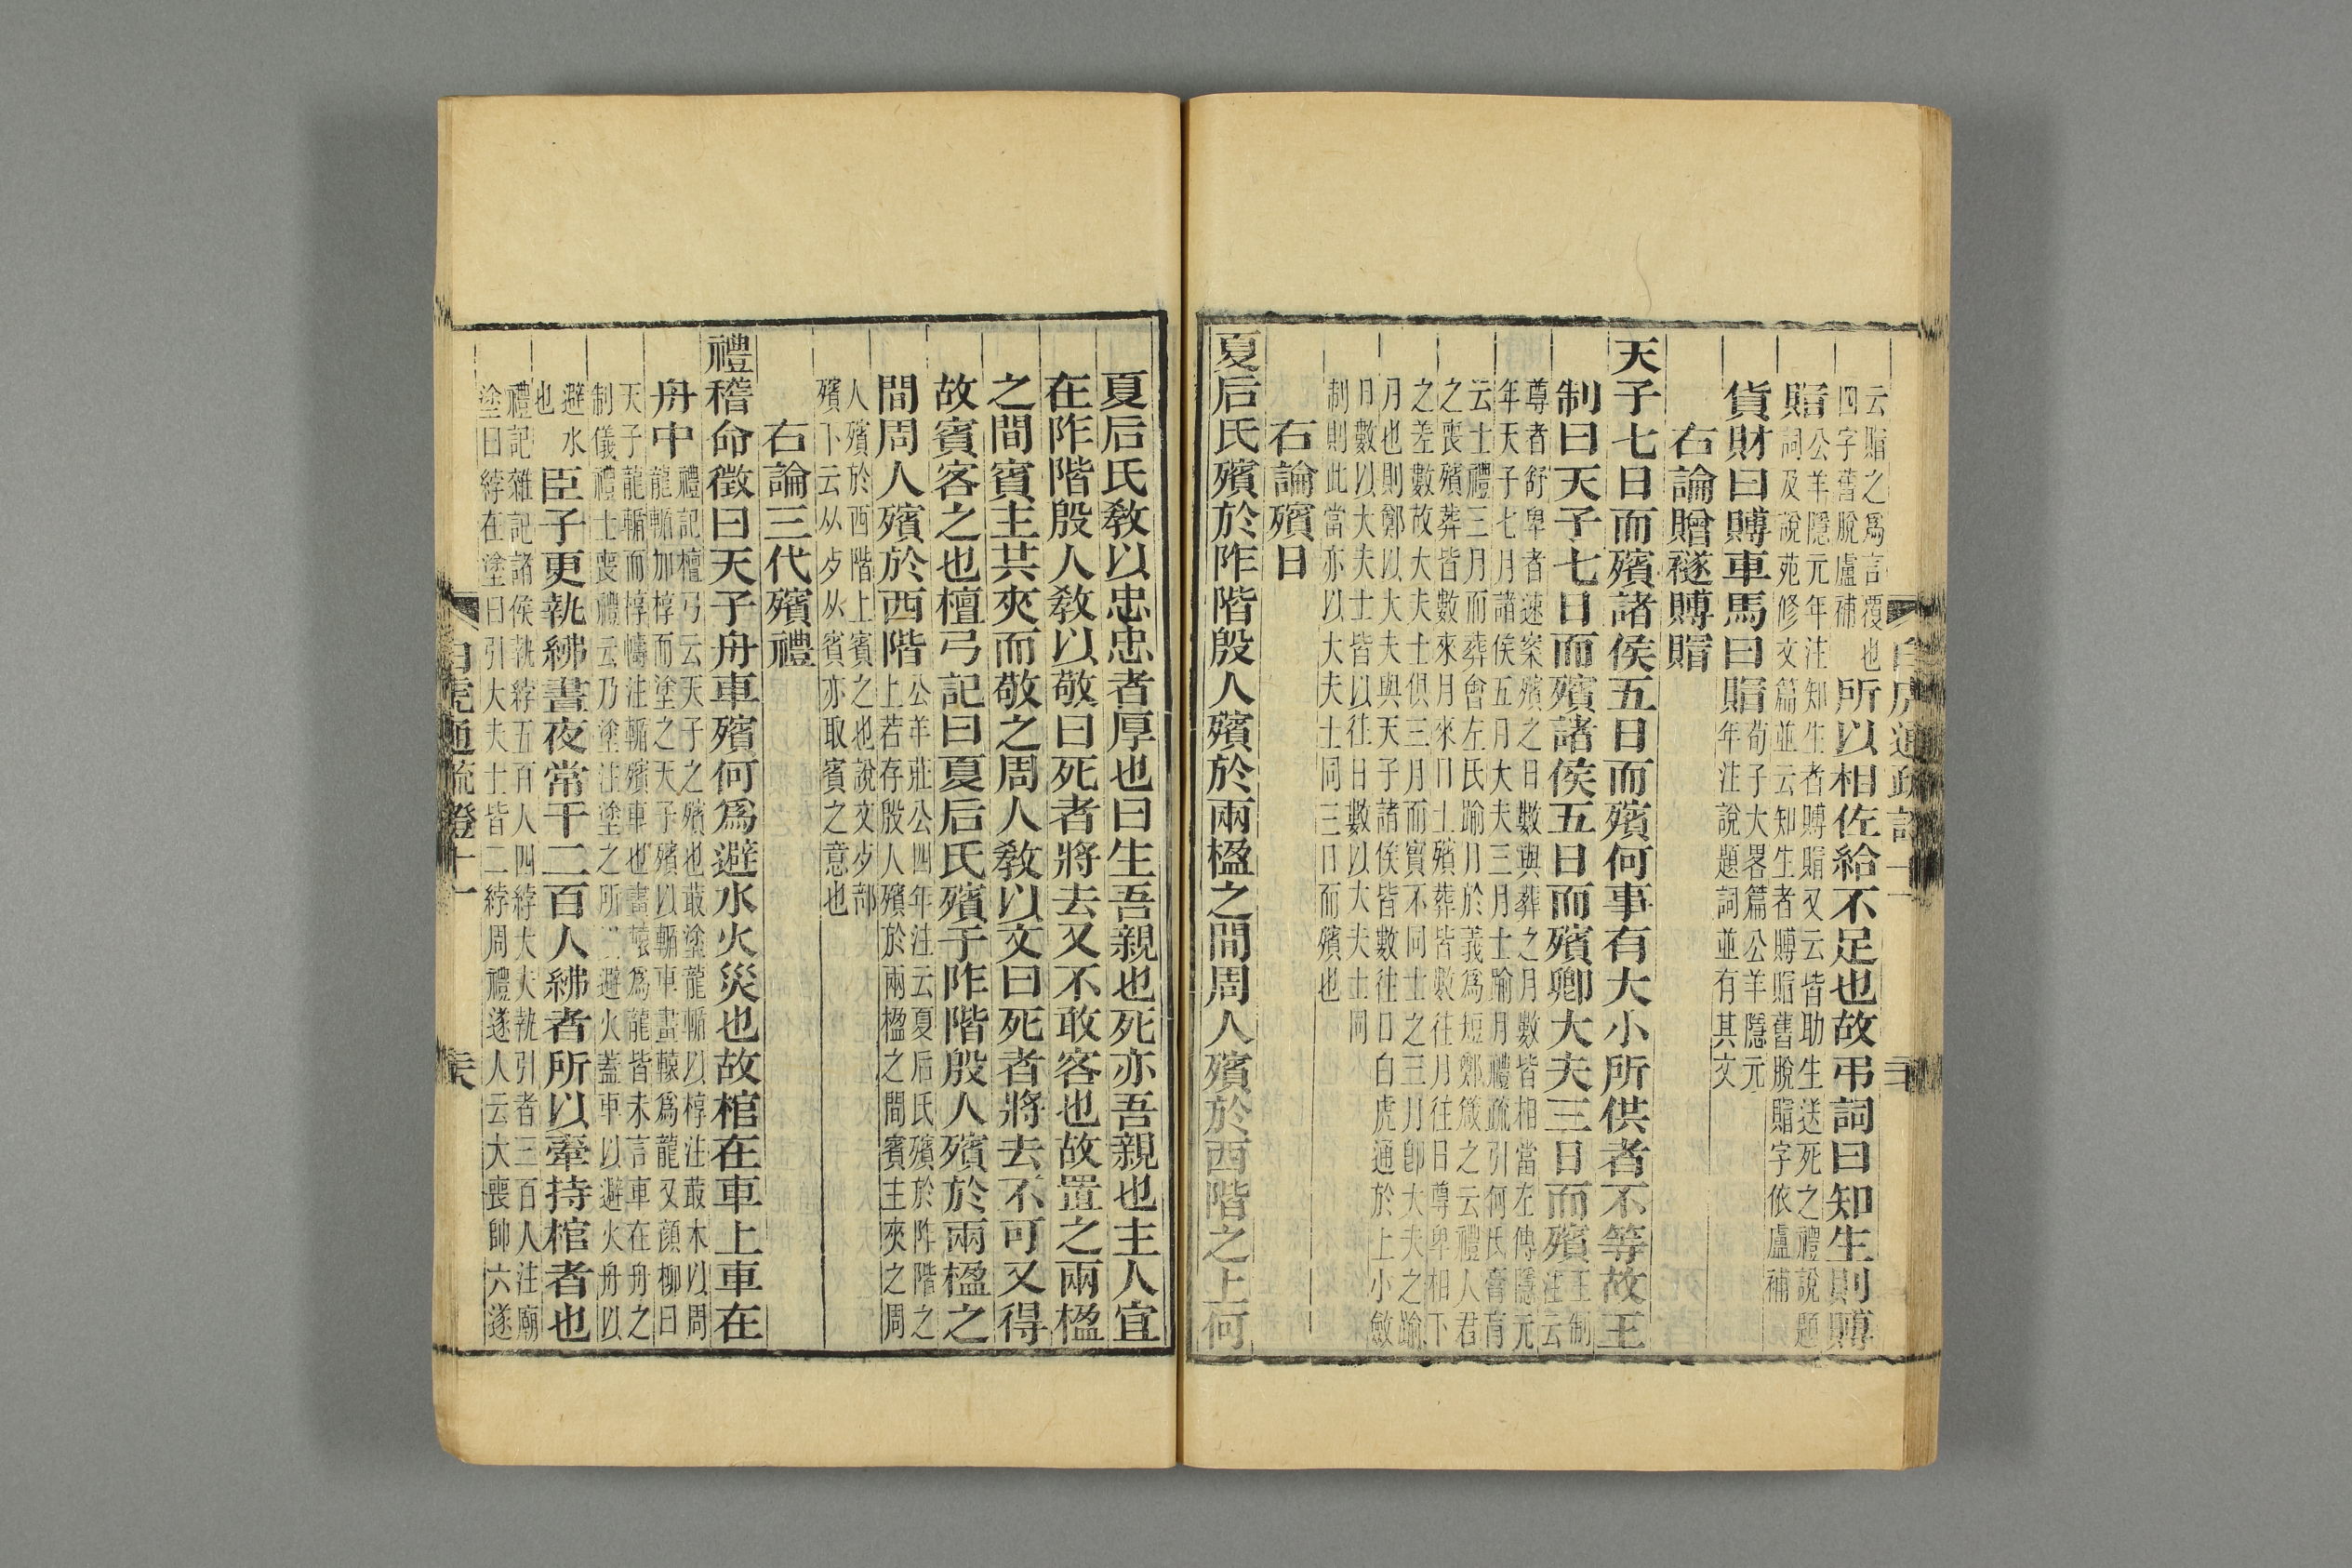 云賵之爲言覆也
四字舊脫盧補
所以相佐給不足也故弔詞曰知生則賻
賵
公羊隱元年注知生者賻賵又云皆助生送死之禮說題
詞及說苑修文篇並云知生者賻賵舊脫賵字依盧補
貨財曰賻車馬曰賵
荀子大畧篇公羊隱元
年注說題詞並有其文
右論贈襚賻賵
天子七日而殯諸侯五日而殯何事有大小所供者不等故王
制曰天子七日而殯諸侯五日而殯卿大夫三日而殯
王制
注云
尊者舒卑者速案殯之日數與葬之月數皆相當左傳隱元
年天子七月諸侯五月大夫三月士踰月禮疏引何氏膏肓
云士禮三月而葬會左氏踰月於義爲短鄭箴之云禮人君
之喪殯葬皆數來月來日士殯葬皆數往月往日尊卑相下
之差數故大夫士俱三月而實不同士之三月卽大夫之踰
月也則鄭以大夫與天子諸侯皆數往日白虎通於上小斂
日數以大夫士皆以往日數以大夫士同
制則此當亦以大夫士同三日而殯也
右論殯日
夏后氏殯於阼階殷人殯於兩楹之間周人殯於西階之上何
夏后氏教以忠忠者厚也曰生吾親也死亦吾親也主人宜
在阼階殷人教以敬曰死者將去又不敢客也故置之兩楹
之間賓主共夾而敬之周人教以文曰死者將去不可又得
故賓客之也檀弓記曰夏后氏殯于阼階殷人殯於兩楹之
間周人殯於西階
公羊莊公四年注云夏后氏殯於阼階之
上若存殷人殯於兩楹之間賓主夾之周
人殯於西階上賓之也說文歺部
殯下云从歺从賓亦取賓之意也
右論三代殯禮
禮稽命徵曰天子舟車殯何爲避水火災也故棺在車上車在
舟中
禮記檀弓云天子之殯也菆塗龍輴以椁注菆木以周
龍輴加椁而塗之天子殯以輴車畫轅爲龍又顔柳曰
天子龍輴而椁幬注輴殯車也畫轅爲龍皆未言車在舟之
制儀禮士喪禮云乃塗注塗之所避火蓋車以避火舟以
避水
也
臣子更執紼晝夜常千二百人紼者所以牽持棺者也
禮記雜記諸侯執綍五百人四綍大夫執引者三百人注廟
塗曰綍在塗曰引大夫士皆二綍周禮遂人云大喪帥六遂
白虎通疏證十一